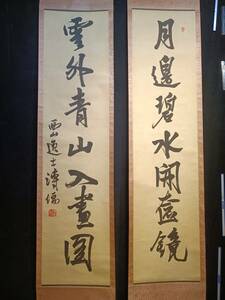 月邊碧水開奩鏡
雲外青山入畫圖
西山逸士溥儒